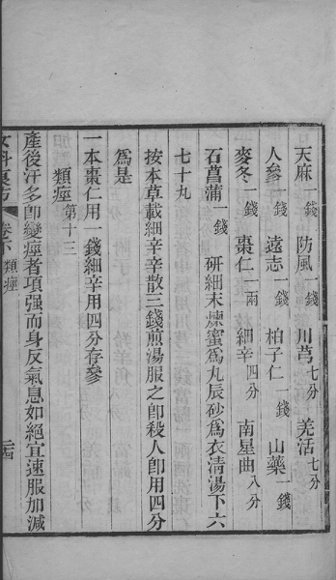 天麻一錢　防風一錢　川芎七分　羌活七分
人參一錢　遠志一錢　柏子仁一錢　山藥一錢
麥冬一錢　棗仁一兩　細辛四分　南星曲八分
石菖蒲一錢　研細末煉蜜爲丸辰砂爲衣清湯下六
七十丸
按本草載細辛辛散三錢煎湯服之卽殺人卽用四分
爲是
一本棗仁用一錢細辛用四分存參
類痙第十三
產後汗多卽變痙者項强而身反氣息如絕宜速服加減
女科㫖要方　卷下　類痙